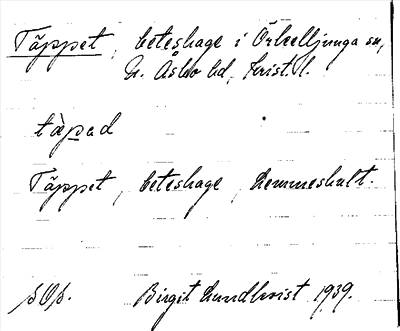 Täppet, beteshage i Örkelljunga sn,
N. Åsbo hd, Krist. l.
täpad
Täppet, beteshage, Hemmeshult.
sOp. Birgit Lundkvist 1939.